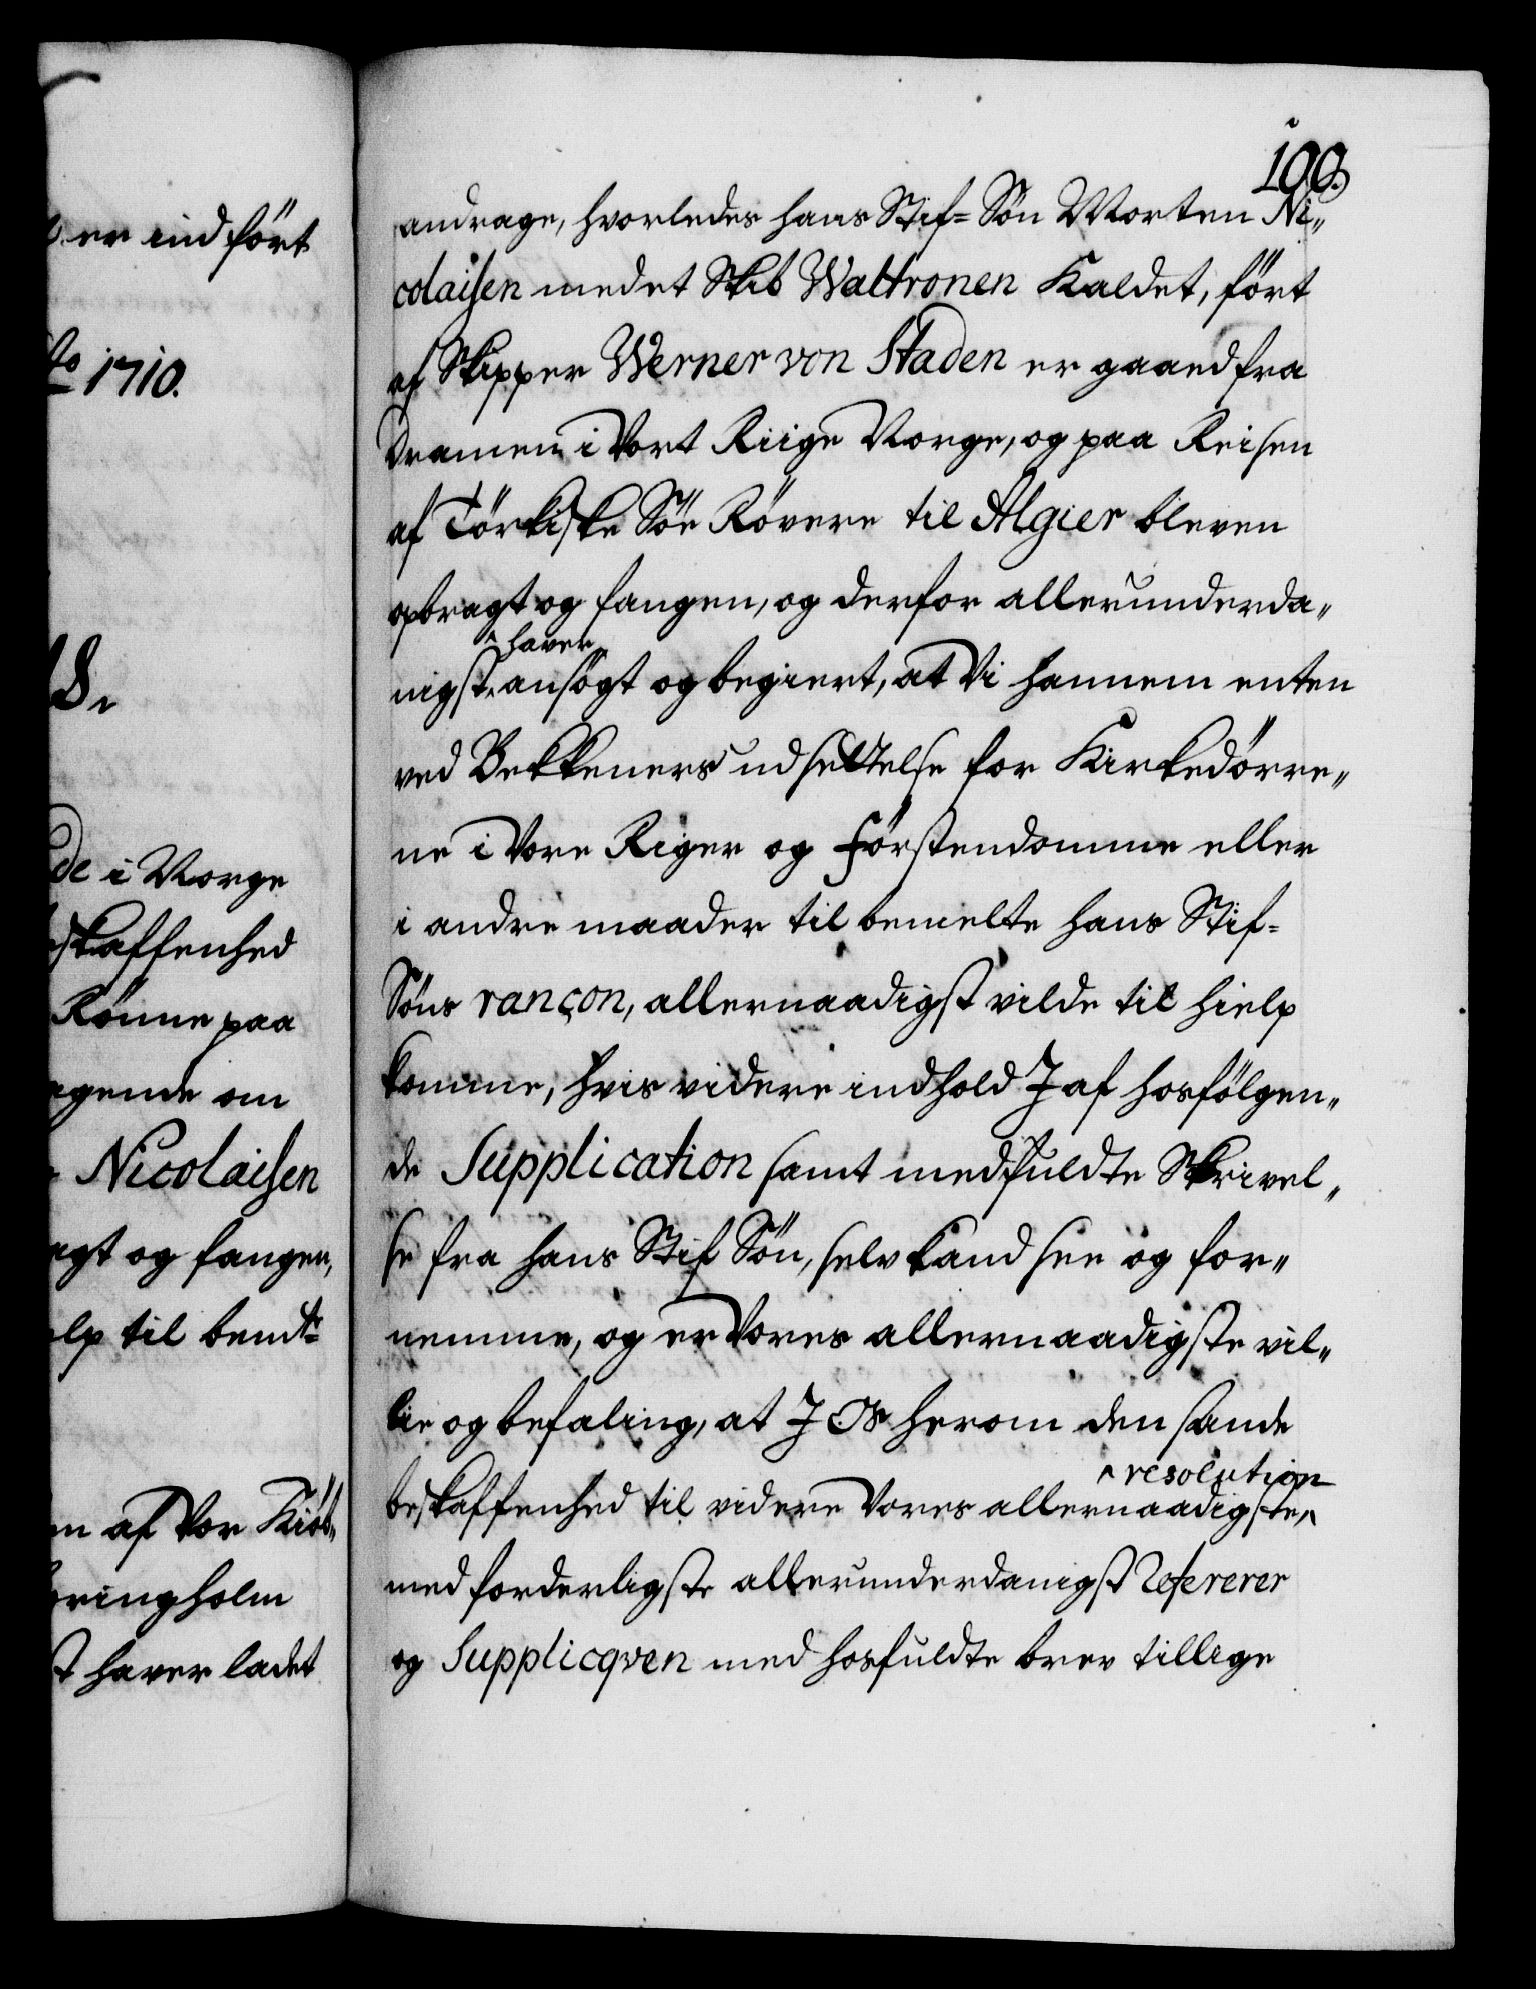 er ind ført
1710.
de i Norge
skaffenhed
Rönne paa
gende om
Nicolaisen
agt og fangen,
elp til bemte
en af Vor Kiöb„
pringholm
haver ladet
100.
andrage, hvorledes hans Stif= Sön Morten Ni„
colaisen med et Skib Waltronen Kaldet, fört
af Skipper Werner von Staden er gaaed fra
Dramen i Vort Riige Norge, og paa Reisen
af Törkiske Söe Rövere til Algier bleven
opbragt og fangen, og derfor allerunderda„
^ haver
nigst, ansögt og begiert, at Vi hannem enten
ved Bekkeners udsettelse for Kirkedörre„
ne i Vore Riger og Förstendomme eller
i andre maader til bemelte hans Stif=
Söns rançon, allernaadigst vilde til hielp
komme, hvis videre indhold J af hosfölgen„
de Supplication samt medfuldte Skrivel„
se fra hans Stif Sön, selv kand see og for„
nemme, og er Vores allernaadigste vil„
lie og befaling, at J Os herom den sande
^ resolution
beskaffenhed til videre Vores allernaadigste,^
med forderligste allerunderdanigst Refererer
og Supplicqven med hosfuldte brev tillige